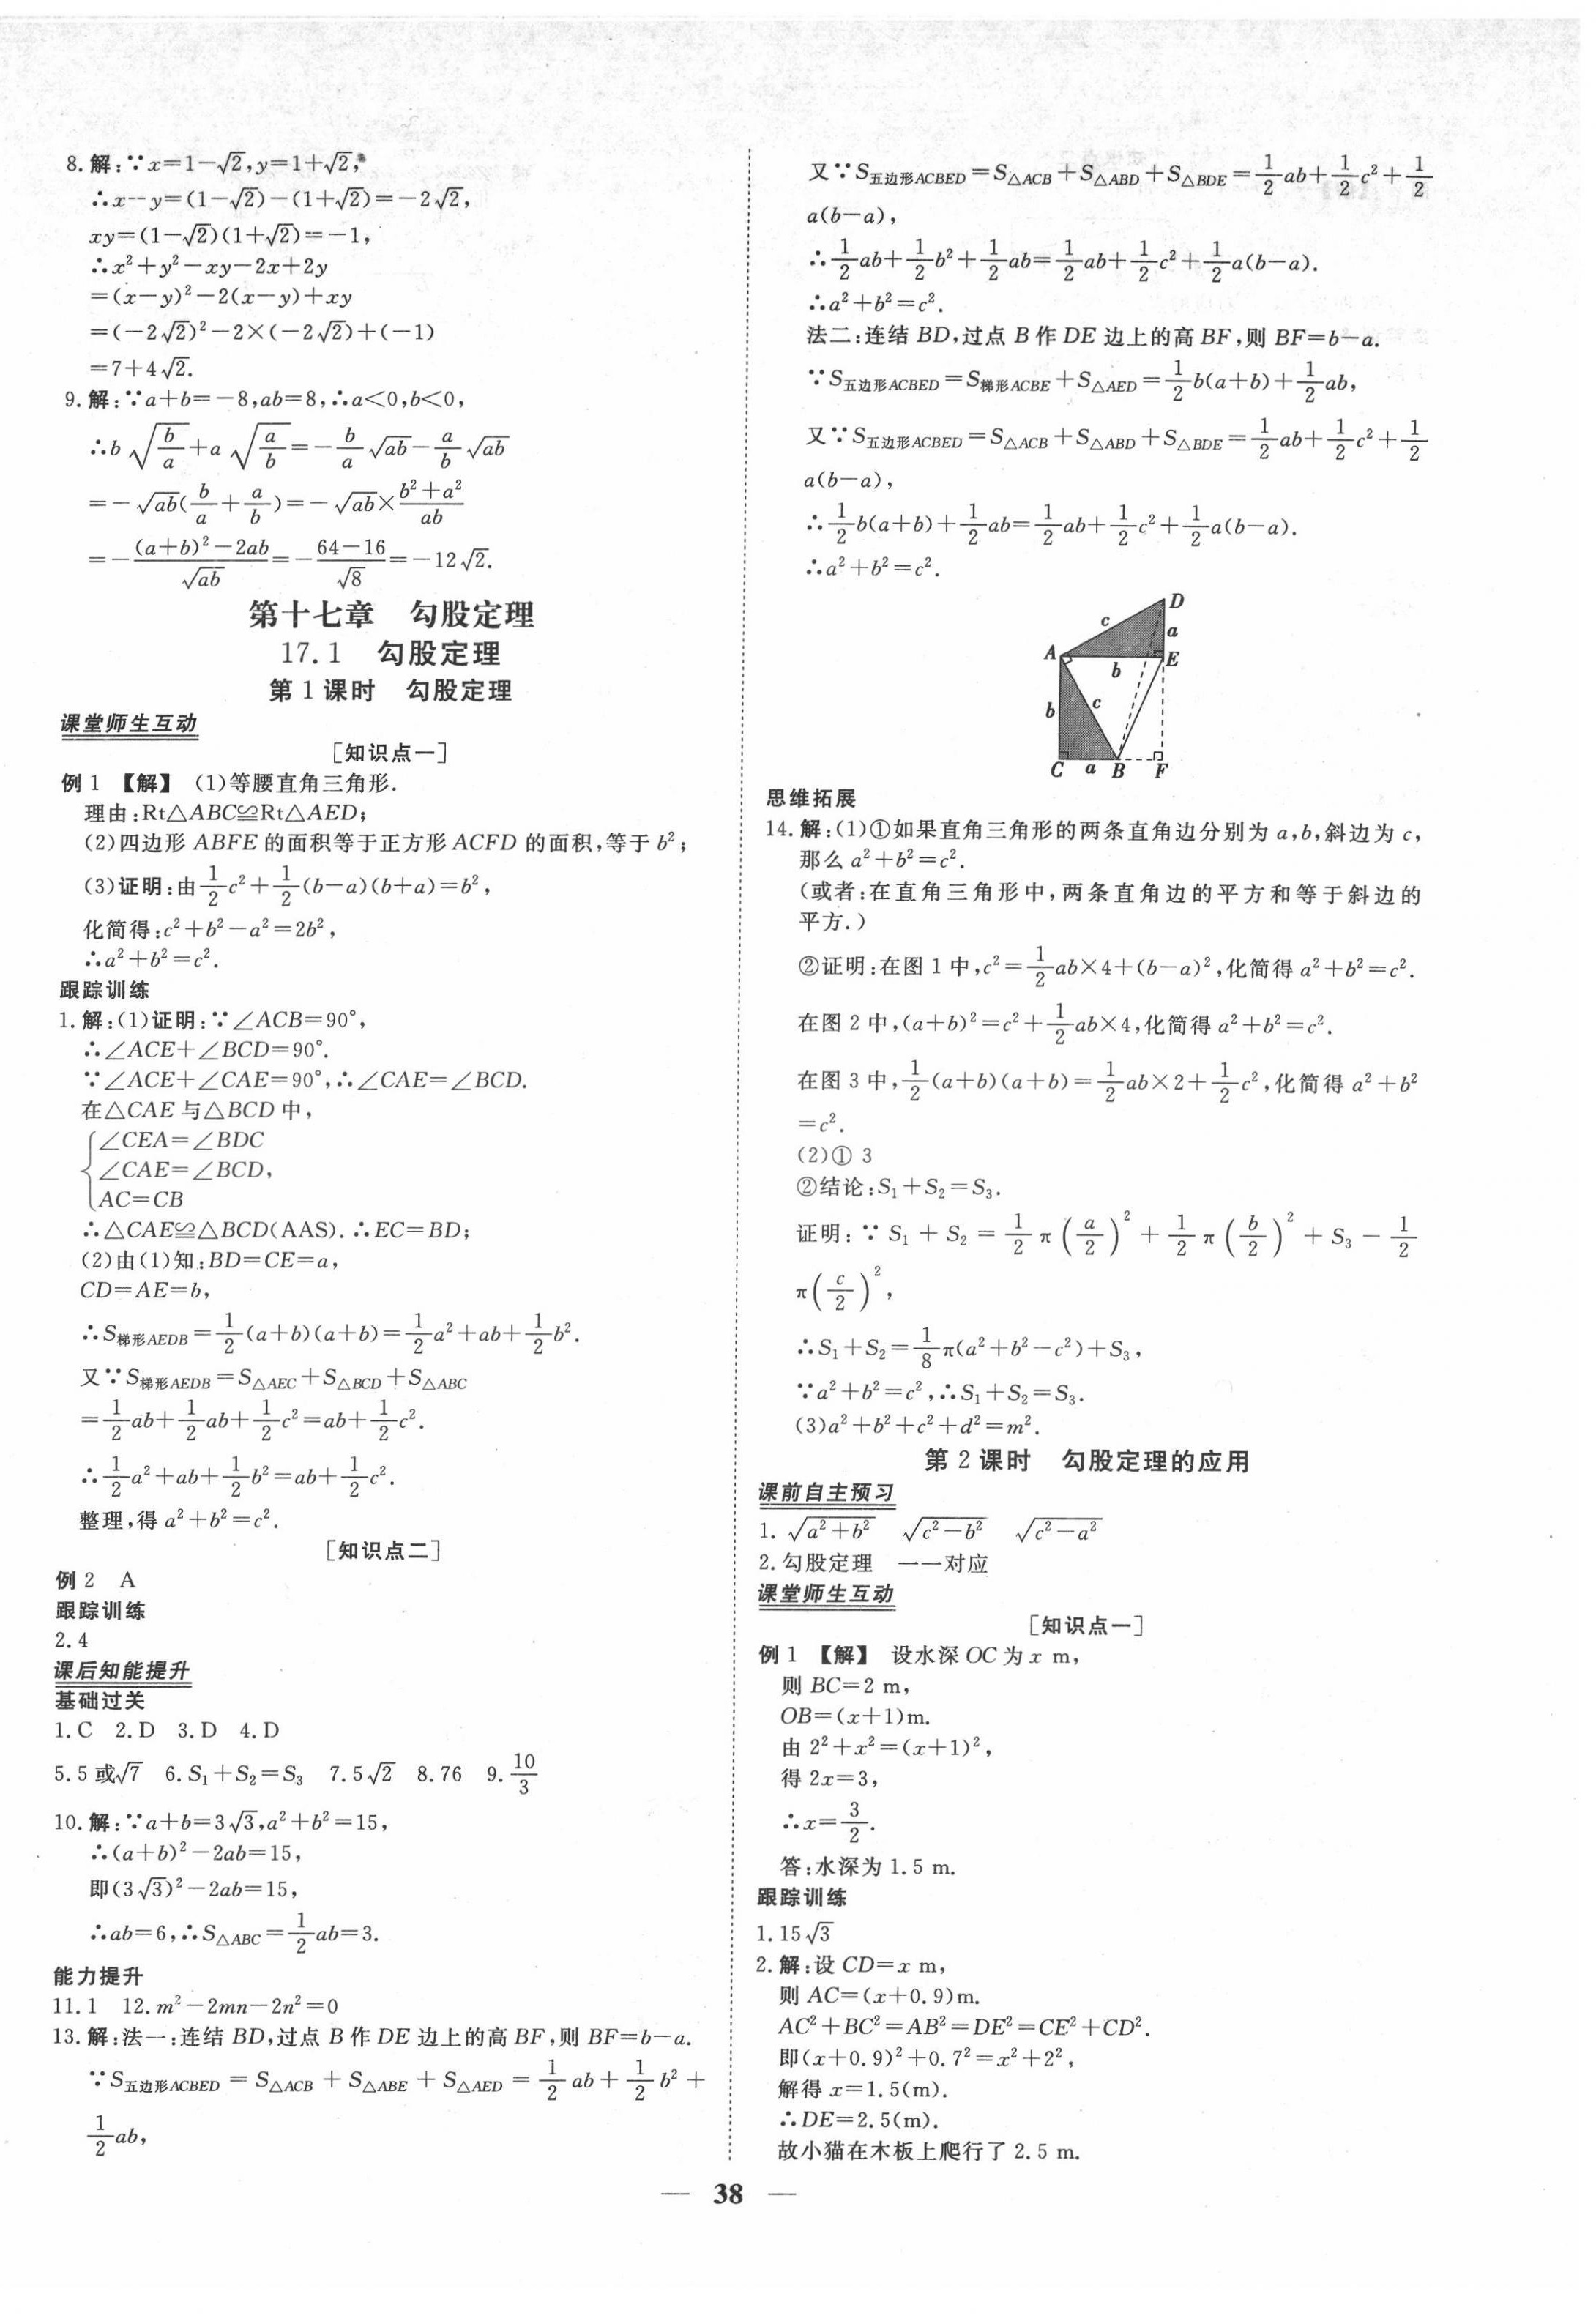 8.解:∵x=1-√2,y=1+√2,
∴x-y=(1-√2)-(1+√2)=-2√2,
xy=(1-√2)(1+√2)=-1,
∴x²+y²-xy-2x+2y
=(x-y)²-2(x-y)+xy
=(-2√2)²-2×(-2√2)+(-1)
=7+4√2.
9.解:∵a+b=-8,ab=8,∴a<0,b<0,
∴b√(b/a)+a√(a/b)=-b/a√ab-a/b√ab
=-√ab(b/a+a/b)=-√ab×(b²+a²)/ab
=-((a+b)²-2ab)/√ab=-(64-16)/√8=-12√2.
第十七章 勾股定理
17.1 勾股定理
第1课时 勾股定理
课堂师生互动
[知识点一]
例1 【解】 (1)等腰直角三角形.
理由:Rt△ABC≌Rt△AED;
(2)四边形ABFE的面积等于正方形ACFD的面积,等于b²;
(3)证明:由1/2c²+1/2(b-a)(b+a)=b²,
化简得:c²+b²-a²=2b²,
∴a²+b²=c².
跟踪训练
1.解:(1)证明:∵∠ACB=90°,
∴∠ACE+∠BCD=90°.
∵∠ACE+∠CAE=90°,∴∠CAE=∠BCD.
在△CAE与△BCD中,
{∠CEA=∠BDC
∠CAE=∠BCD,
AC=CB
∴△CAE≌△BCD(AAS).∴EC=BD;
(2)由(1)知:BD=CE=a,
CD=AE=b,
∴S梯形AEDB=1/2(a+b)(a+b)=1/2a²+ab+1/2b².
又∵S梯形AEDB=S△AEC+S△BCD+S△ABC
=1/2ab+1/2ab+1/2c²=ab+1/2c².
∴1/2a²+ab+1/2b²=ab+1/2c².
整理,得a²+b²=c².
[知识点二]
例2 A
跟踪训练
2.4
课后知能提升
基础过关
1.C 2.D 3.D 4.D
5.5或√7 6.S₁+S₂=S₃ 7.5√2 8.76 9.10/3
10.解:∵a+b=3√3,a²+b²=15,
∴(a+b)²-2ab=15,
即(3√3)²-2ab=15,
∴ab=6,∴S△ABC=1/2ab=3.
能力提升
11.1 12.m²-2mn-2n²=0
13.解:法一:连结BD,过点B作DE边上的高BF,则BF=b-a.
∵S五边形ACBED=S△ACB+S△ABE+S△AED=1/2ab+1/2b²+
1/2ab,
又∵S五边形ACBED=S△ACB+S△ABD+S△BDE=1/2ab+1/2c²+1/2
a(b-a),
∴1/2ab+1/2b²+1/2ab=1/2ab+1/2c²+1/2a(b-a).
∴a²+b²=c².
法二:连结BD,过点B作DE边上的高BF,则BF=b-a.
∵S五边形ACBED=S梯形ACBE+S△AED=1/2b(a+b)+1/2ab,
又∵S五边形ACBED=S△ACB+S△ABD+S△BDE=1/2ab+1/2c²+1/2
a(b-a),
∴1/2b(a+b)+1/2ab=1/2ab+1/2c²+1/2a(b-a).
∴a²+b²=c².
D
c
a
A
E
b
b
c
C a B F
思维拓展
14.解:(1)①如果直角三角形的两条直角边分别为a,b,斜边为c,
那么a²+b²=c².
(或者:在直角三角形中,两条直角边的平方和等于斜边的
平方.)
②证明:在图1中,c²=1/2ab×4+(b-a)²,化简得a²+b²=c².
在图2中,(a+b)²=c²+1/2ab×4,化简得a²+b²=c².
在图3中,1/2(a+b)(a+b)=1/2ab×2+1/2c²,化简得a²+b²
=c².
(2)① 3
②结论:S₁+S₂=S₃.
证明:∵S₁+S₂=1/2π(a/2)²+1/2π(b/2)²+S₃-1/2
π(c/2)²,
∴S₁+S₂=1/8π(a²+b²-c²)+S₃,
∵a²+b²=c²,∴S₁+S₂=S₃.
(3)a²+b²+c²+d²=m².
第2课时 勾股定理的应用
课前自主预习
1.√(a²+b²) √(c²-b²) √(c²-a²)
2.勾股定理 一一对应
课堂师生互动
[知识点一]
例1 【解】 设水深OC为x m,
则BC=2 m,
OB=(x+1)m.
由2²+x²=(x+1)²,
得2x=3,
∴x=3/2.
答:水深为1.5 m.
跟踪训练
1.15√3
2.解:设CD=x m,
则AC=(x+0.9)m.
AC²+BC²=AB²=DE²=CE²+CD².
即(x+0.9)²+0.7²=x²+2²,
解得x=1.5(m).
∴DE=2.5(m).
故小猫在木板上爬行了2.5 m.
— 38 —